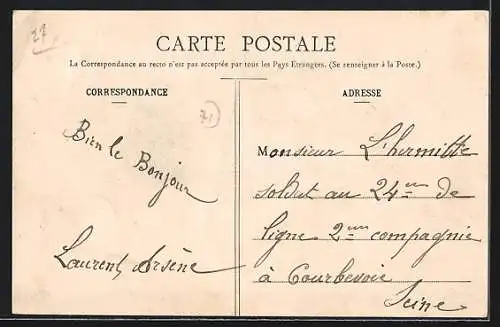 27
CARTE POSTALE
La Correspondance au recto n'est pas acceptée par tous les Pays Etrangers. (Se renseigner à la Poste.)
CORRESPONDANCE
71
Bien le Bonjour
Laurent Arsène
ADRESSE
Monsieur L'hermitte
soldat au 24ème de
ligne 2ème compagnie
à Courbevoie
Seine